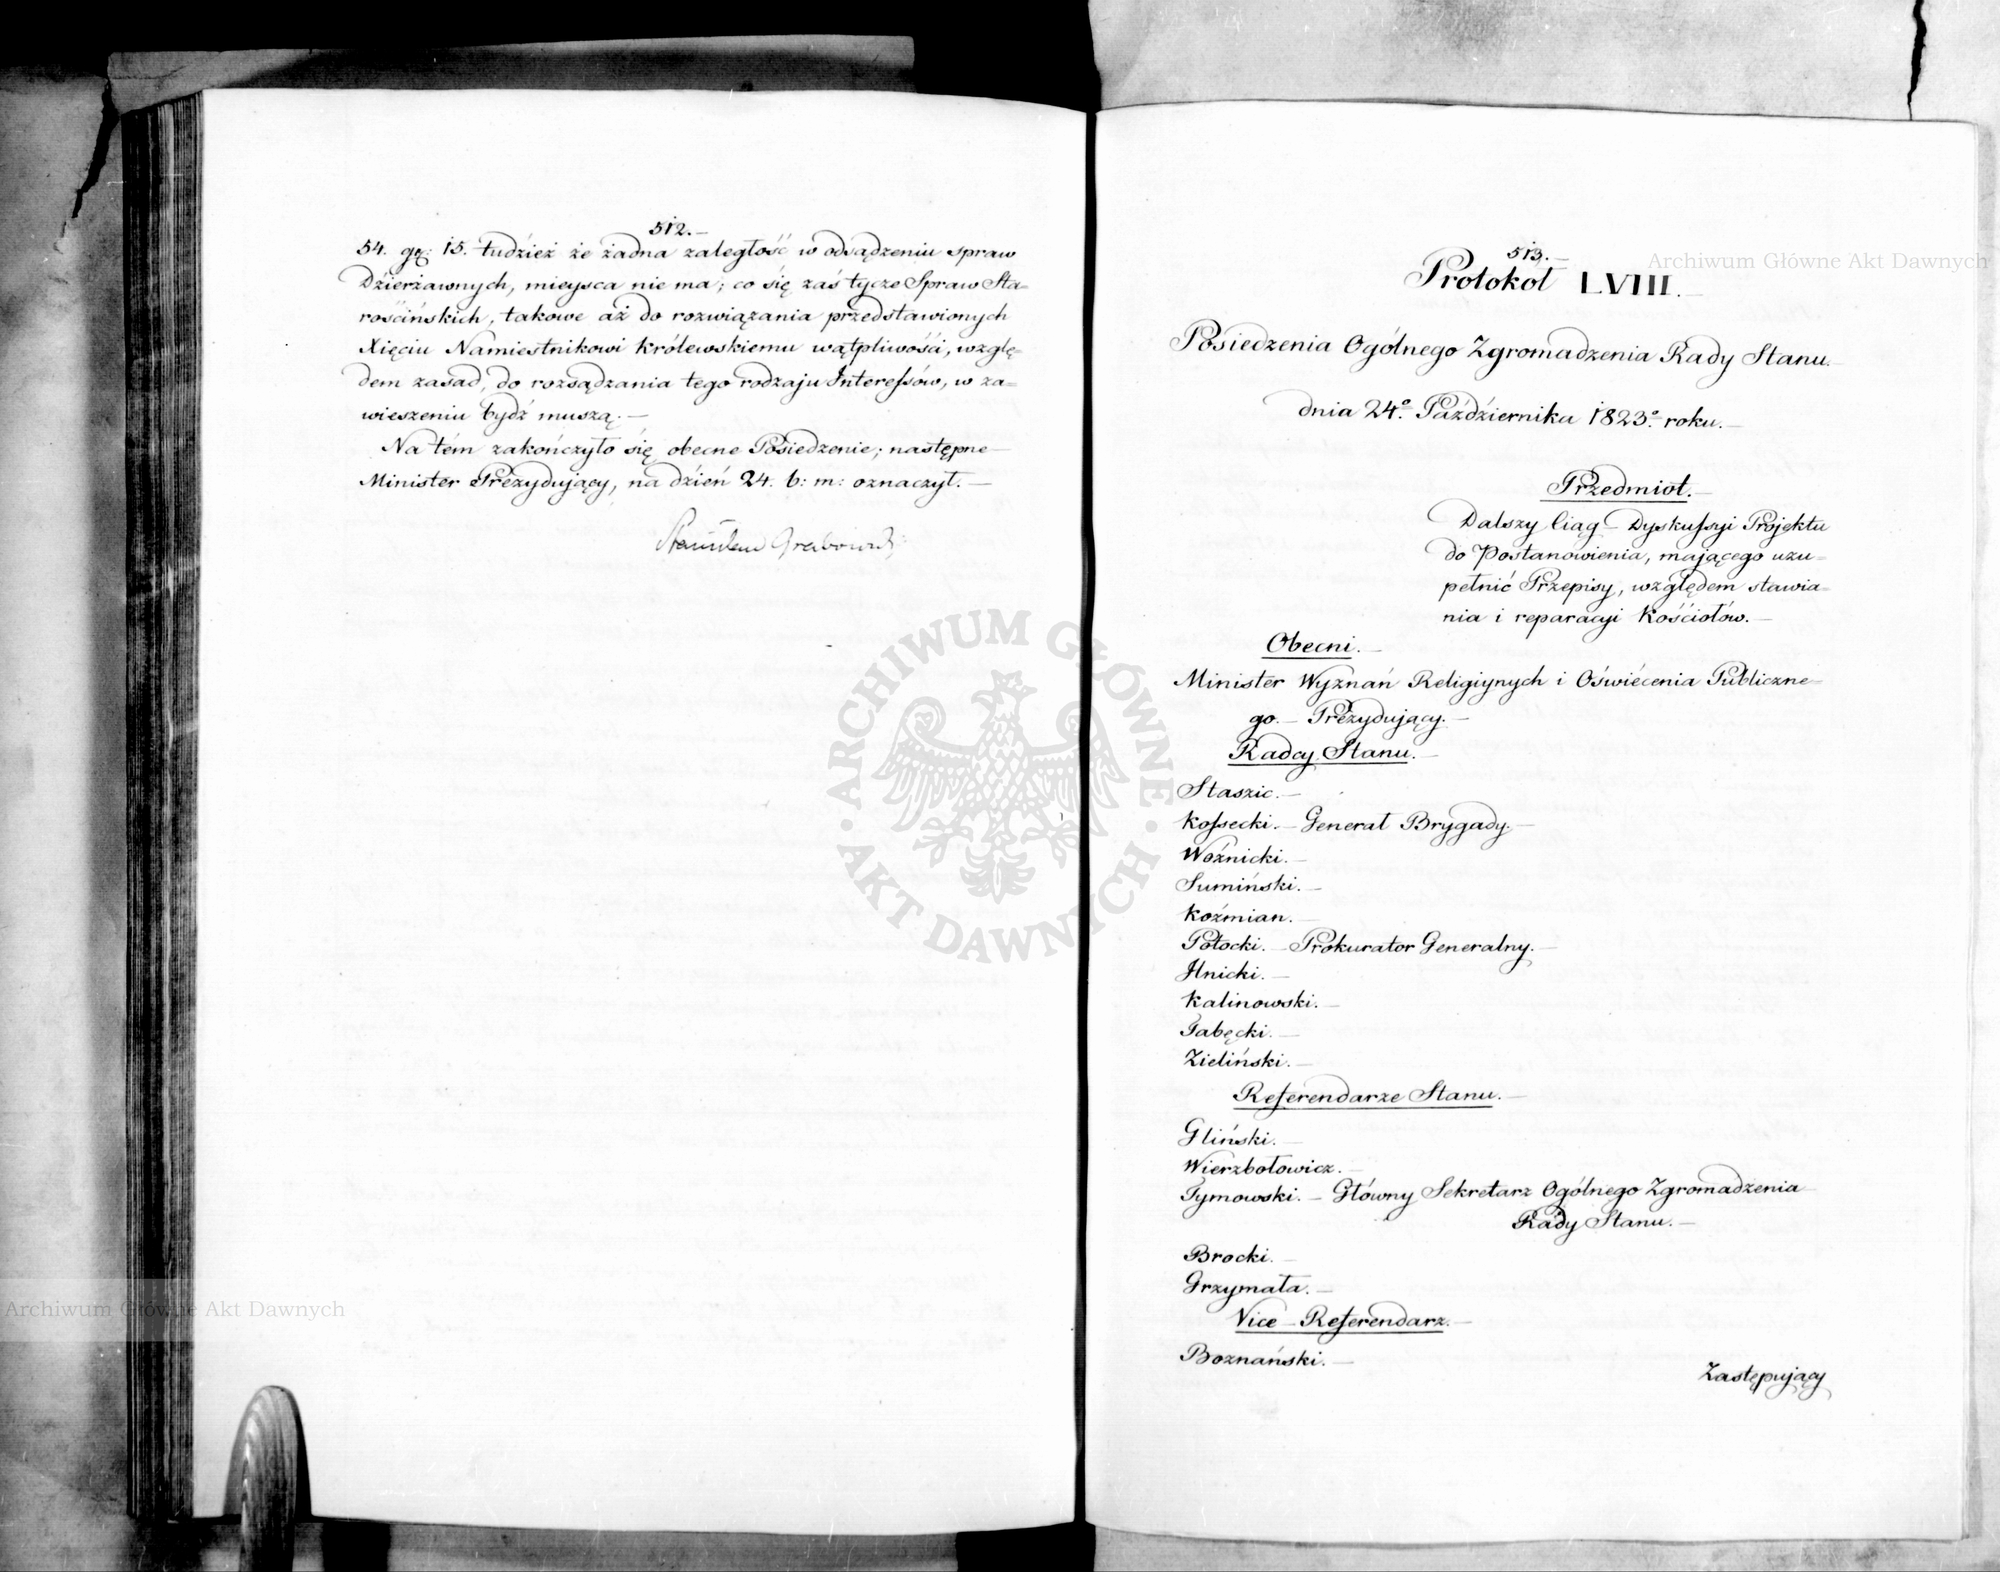 512.
54. gr: 15. tudzież że żadna zaległość w odsądzeniu spraw
Dzierżawnych, mieysca nie ma; co się zaś tycze Spraw Sta=
rościńskich, takowe aż do rozwiązania przedstawionych
Xięciu Namiestnikowi Królewskiemu wątpliwości, wzglę=
dem zasad, do rozsądzania tego rodzaju Interessów, w za=
wieszeniu bydź muszą. —
Na tém zakończyło się obecne Posiedzenie; następne
Minister Prezydujący, na dzień 24. b: m: oznaczył. —
Stanisław Grabowski
513. —
Protokół LVIII. —
Posiedzenia Ogólnego Zgromadzenia Rady Stanu. —
dnia 24º Października 1823º roku. —
Przedmiot. —
Dalszy Ciąg Dyskussyi Projektu
do Postanowienia, mającego uzu=
pełnić Przepisy, względem stawia=
nia i reparacyi Kościołów. —
Obecni. —
Minister Wyznań Religiynych i Oświécenia Publiczne=
go. — Prezydujący. —
Radcy Stanu. —
Staszic. —
Kossecki. — Generał Brygady. —
Woźnicki. —
Sumiński. —
Koźmian. —
Potocki. — Prokurator Generalny. —
Ilnicki. —
Kalinowski. —
Tabęcki. —
Zieliński. —
Referendarze Stanu. —
Gliński. —
Wierzbołowicz. —
Tymowski. — Główny Sekretarz Ogólnego Zgromadzenia
Rady Stanu. —
Brocki. —
Grzymała. —
Vice — Referendarz. —
Boznański. —
Zastępujący
Archiwum Główne Akt Dawnych
ARCHIWUM GŁÓWNE · AKT DAWNYCH ·
Archiwum Główne Akt Dawnych